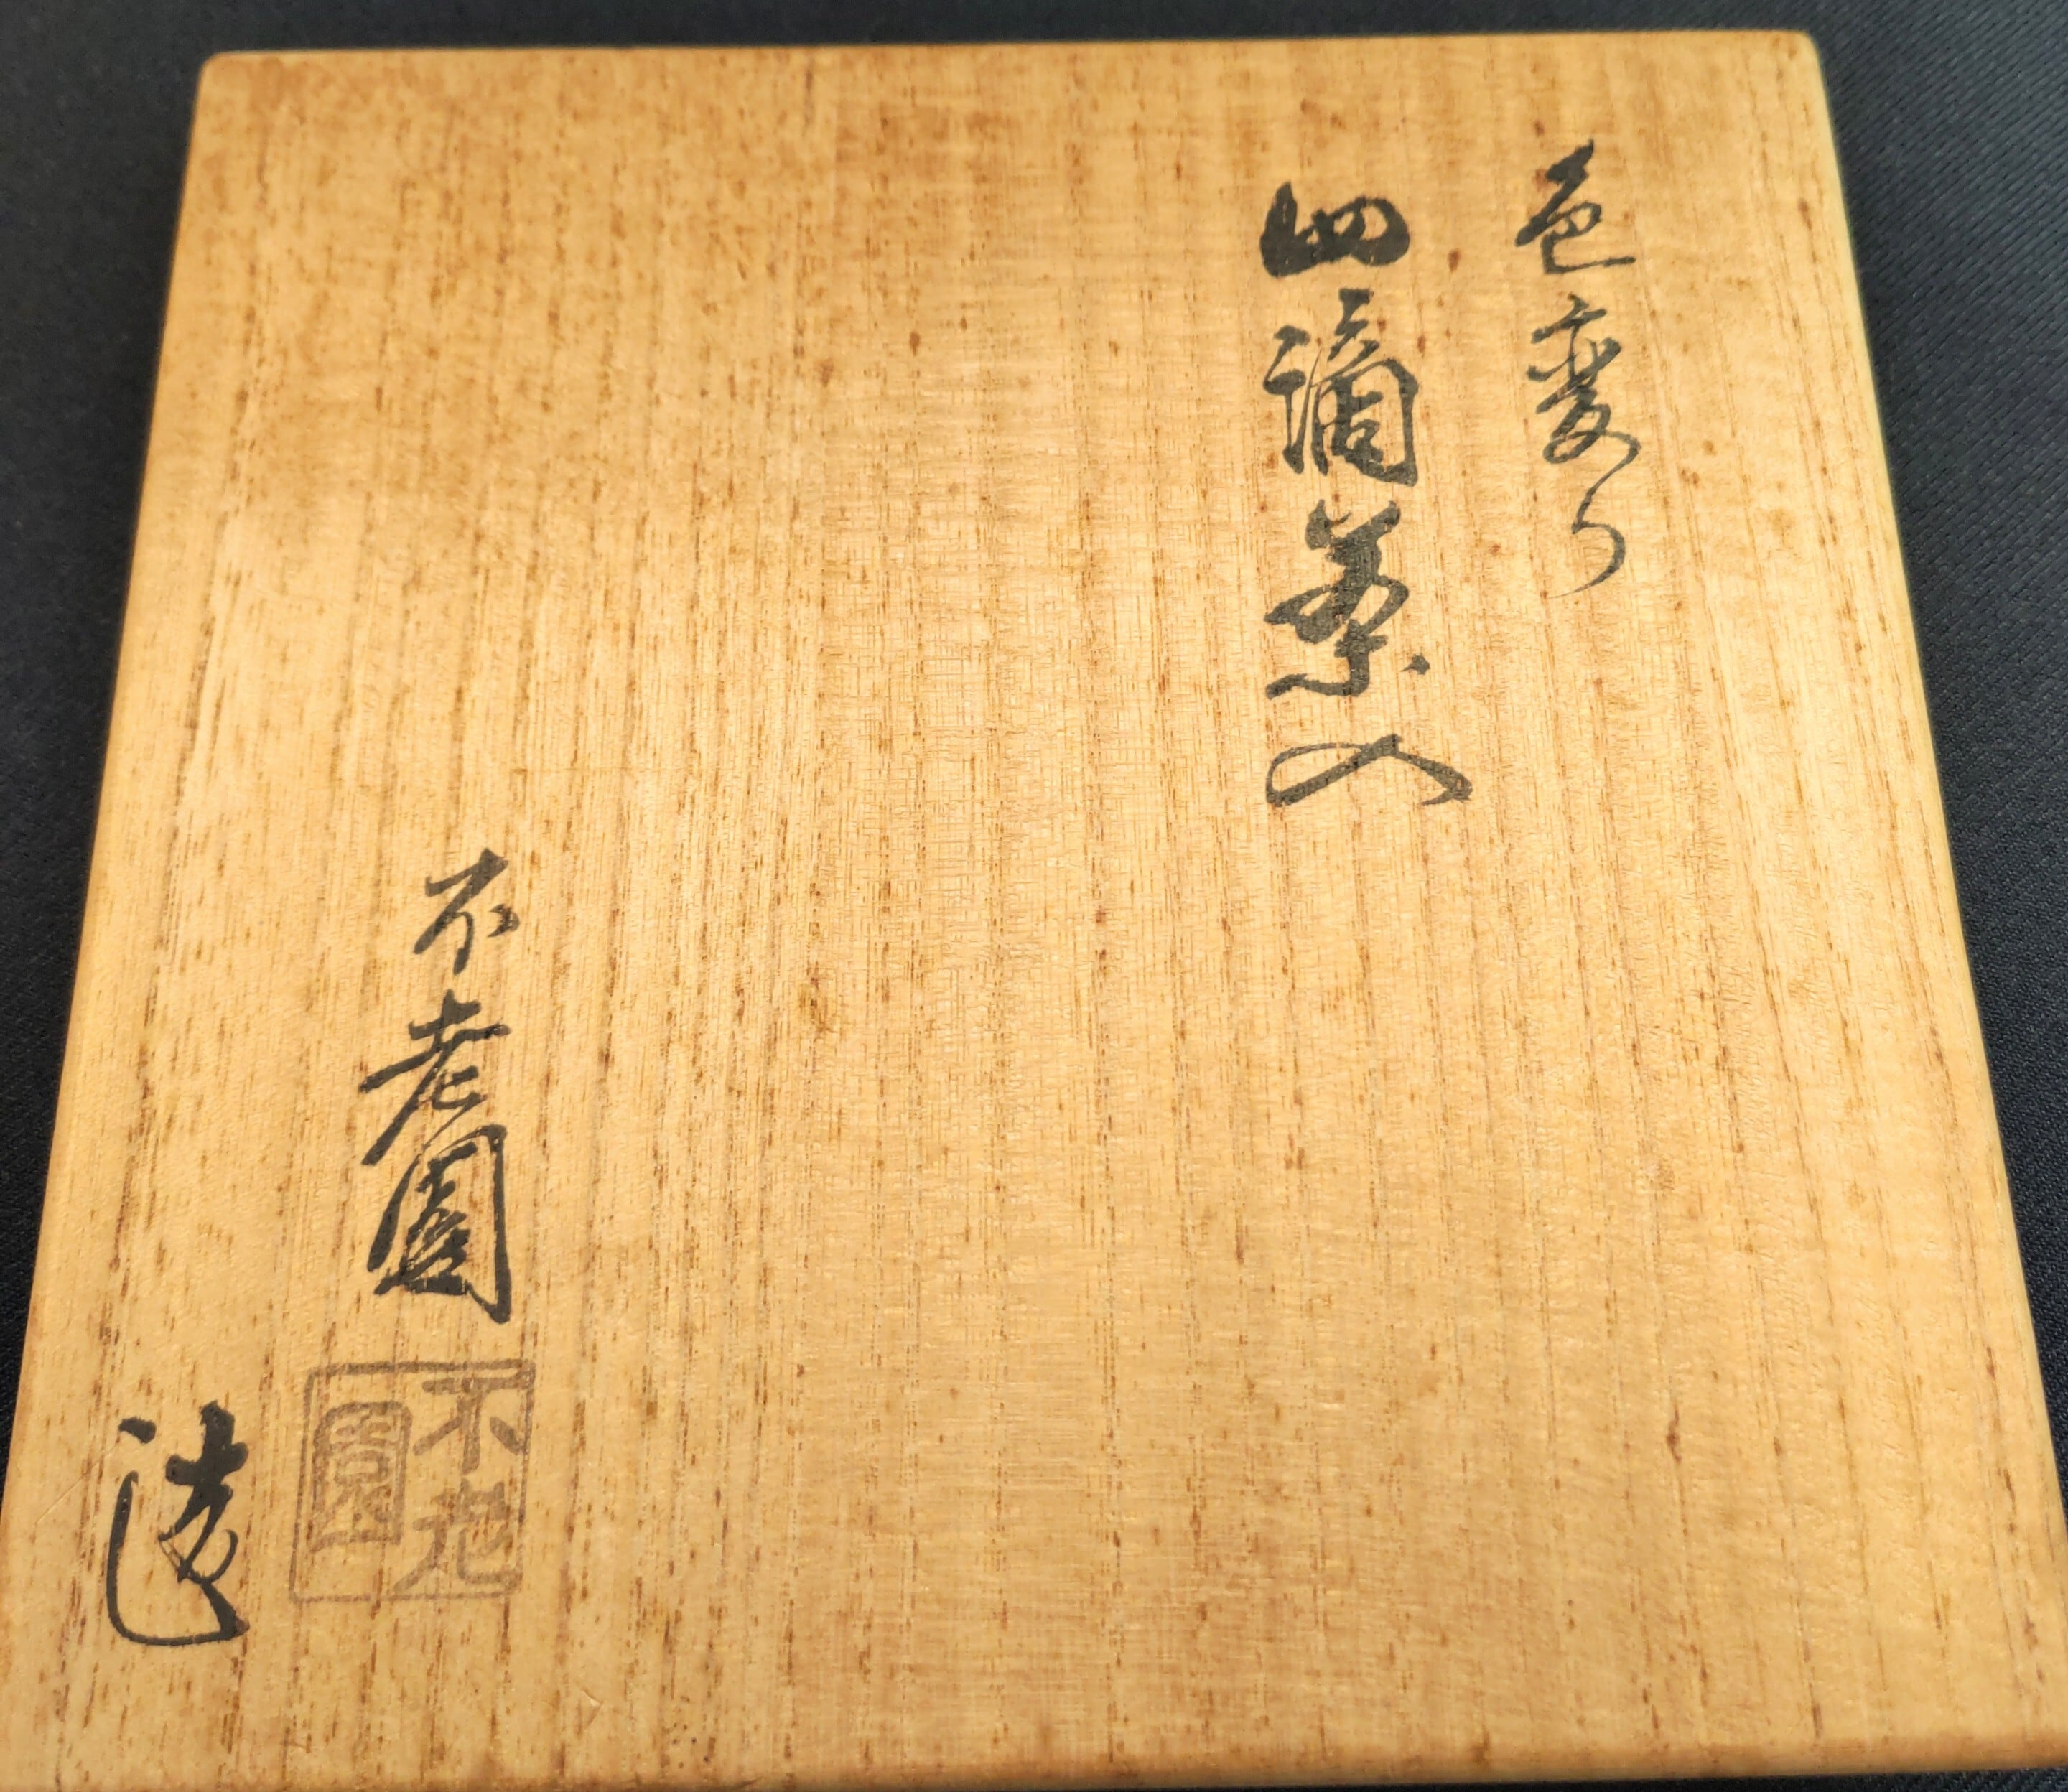 色変り
四滴茶入
不老園
造
不老
園